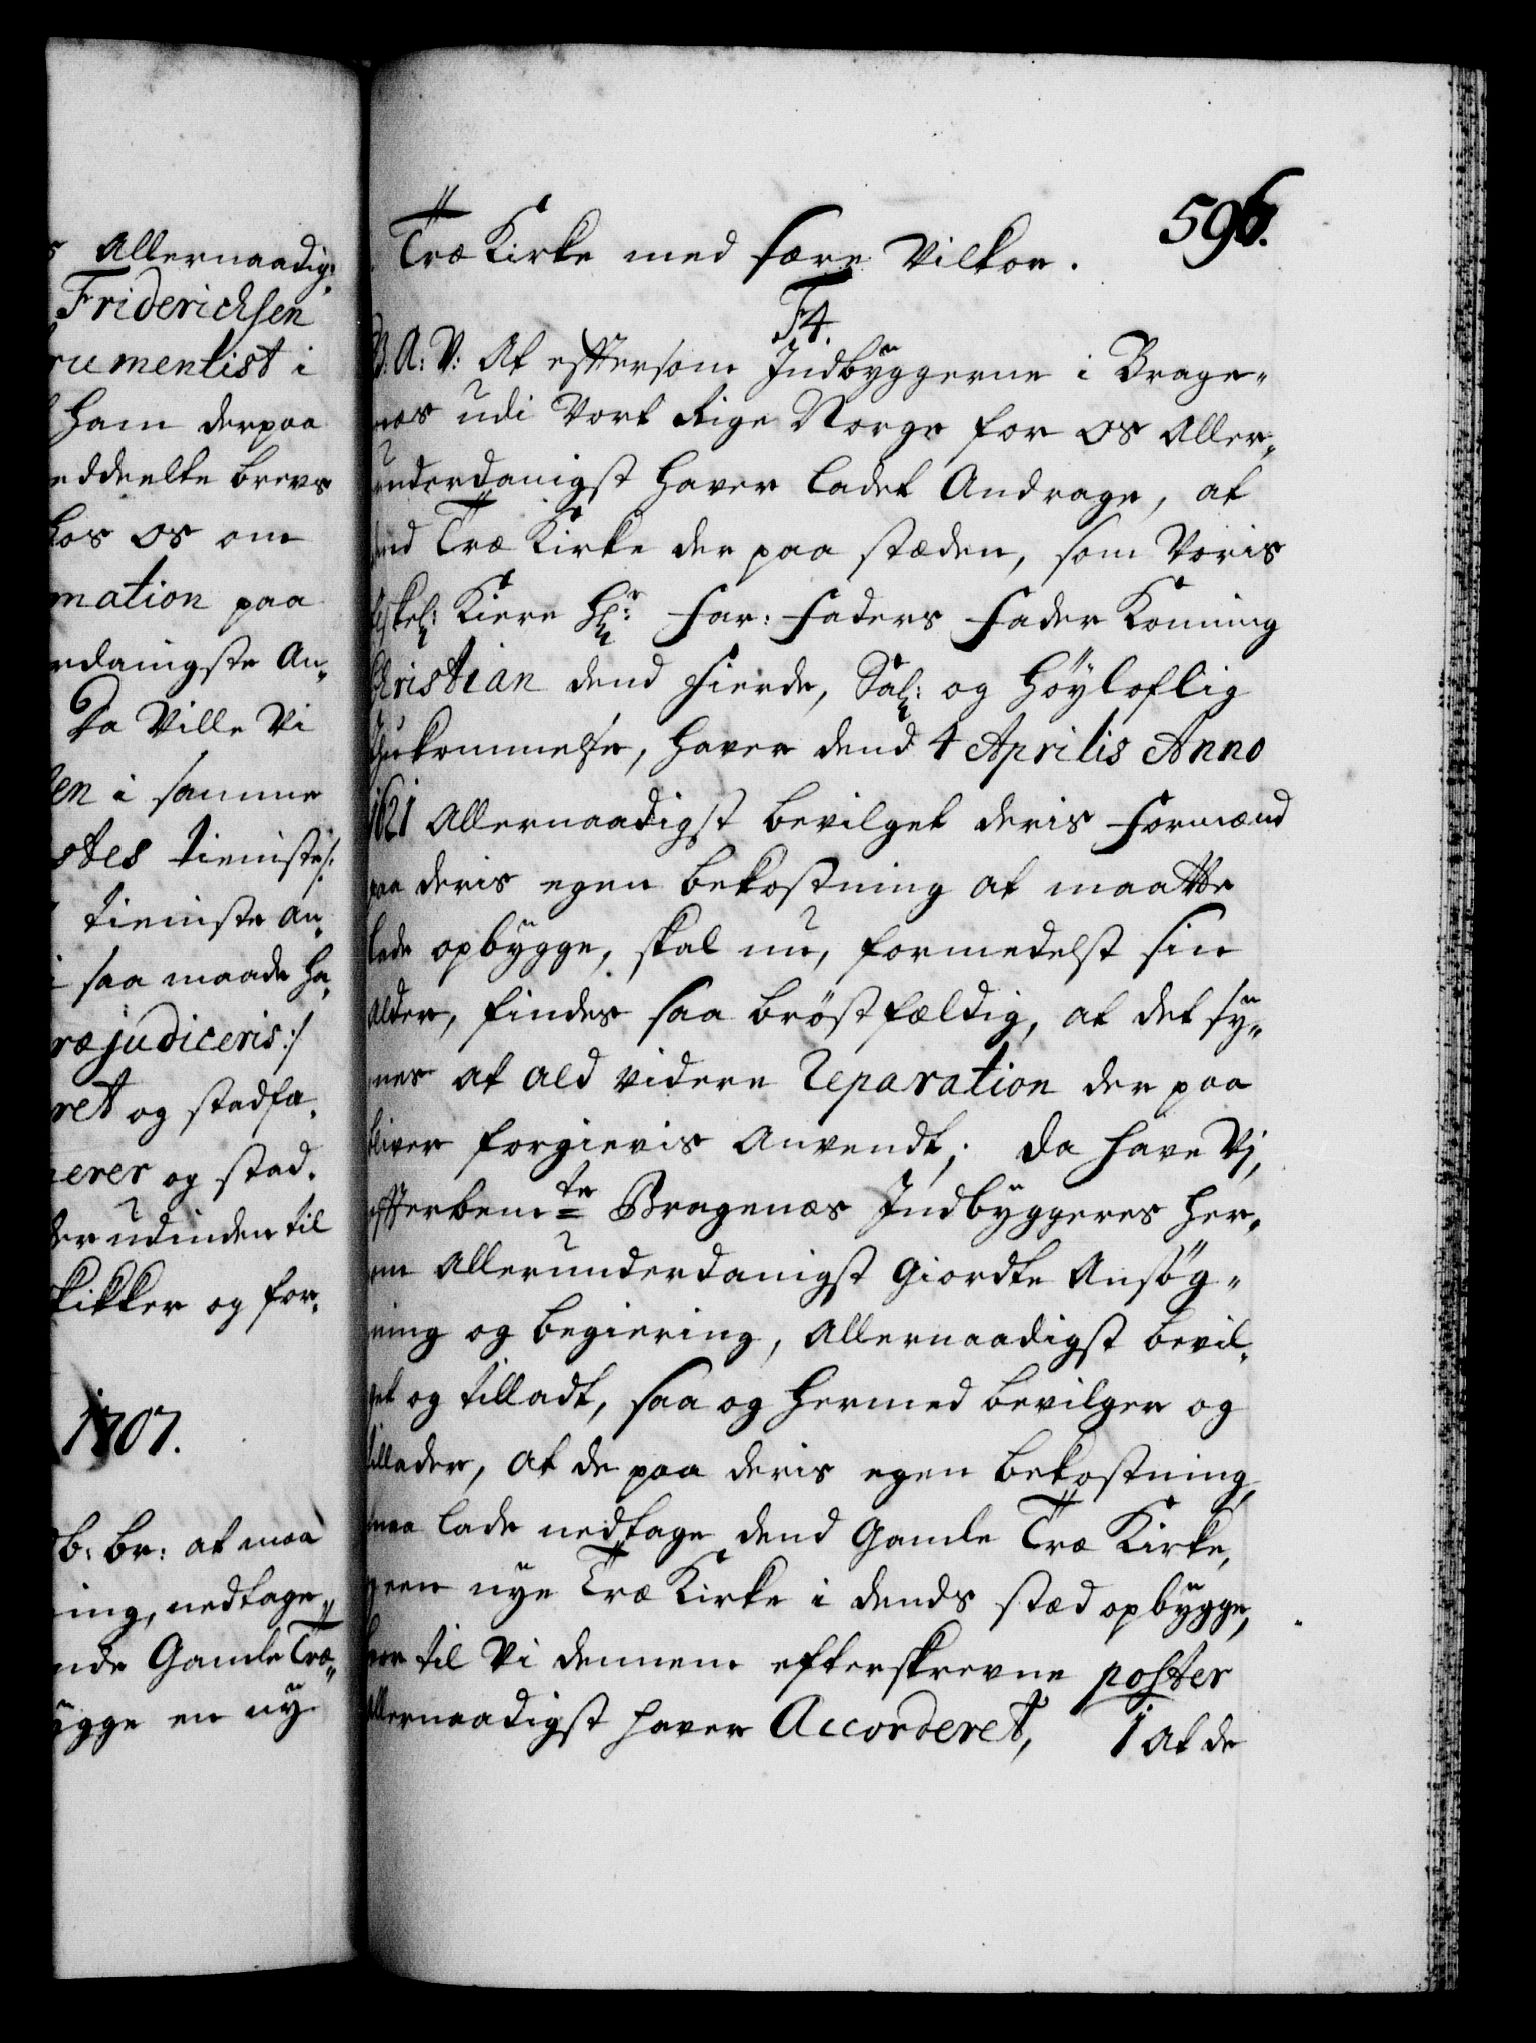 Allernaadig¬
Friderichsen
rumentist i
ham derpaa
eddeelte brevs
hos os om
mation paa
rdanigste An¬
Da Ville Vi
en i samme
stes tieniste/:
tieniste an¬
saa maade ha¬
ræjudiceris:/
ret og stadfæ¬
erer og stad¬
der udinden til
skikker og for¬
1707.
b: br: at maa
ing, nedtage
nde Gamle Træ¬
ygge en ny
596.
Træ Kirke med faare Vilkor.
F4.
A: V: At eftersom Indbyggerne i Brage¬
næs udi Vort Rige Norge for os Aller¬
underdanigst haver ladet Andrage, at
dend Træ Kirke der paa stæden, som Voris
Elskel: Kiere Hr: Far: Faders Fader Konning
Christian dend Fierde, Sal: og Höyloflig
Ihukommelse, haver dend 4 Aprilis Anno
1621 Allernaadigst bevilget deris Formænd
paa deris egen bekostning at maatte
lade opbygge, skal nu, formedelst sin
Alder, findes saa bröstfældig, at det sy¬
nes at ald videre Reparation der paa
bliver forgievis Anvendt; da have Vj,
efterbemte Bragenæs Indbyggeres her¬
om Allerunderdanigst giordte Ansög¬
ning og begiering, Allernaadigst bevil¬
get og tilladt, saa og hermed bevilger og
tillader, at de paa deris egen bekostning
maa lade nedtage dend Gamle Træ Kirke,
og een nye Træ Kirke i dends stæd opbygge,
hvor til Vi dennem efterskrevne poster
Allernaadigst haver Accorderet, 1 At de